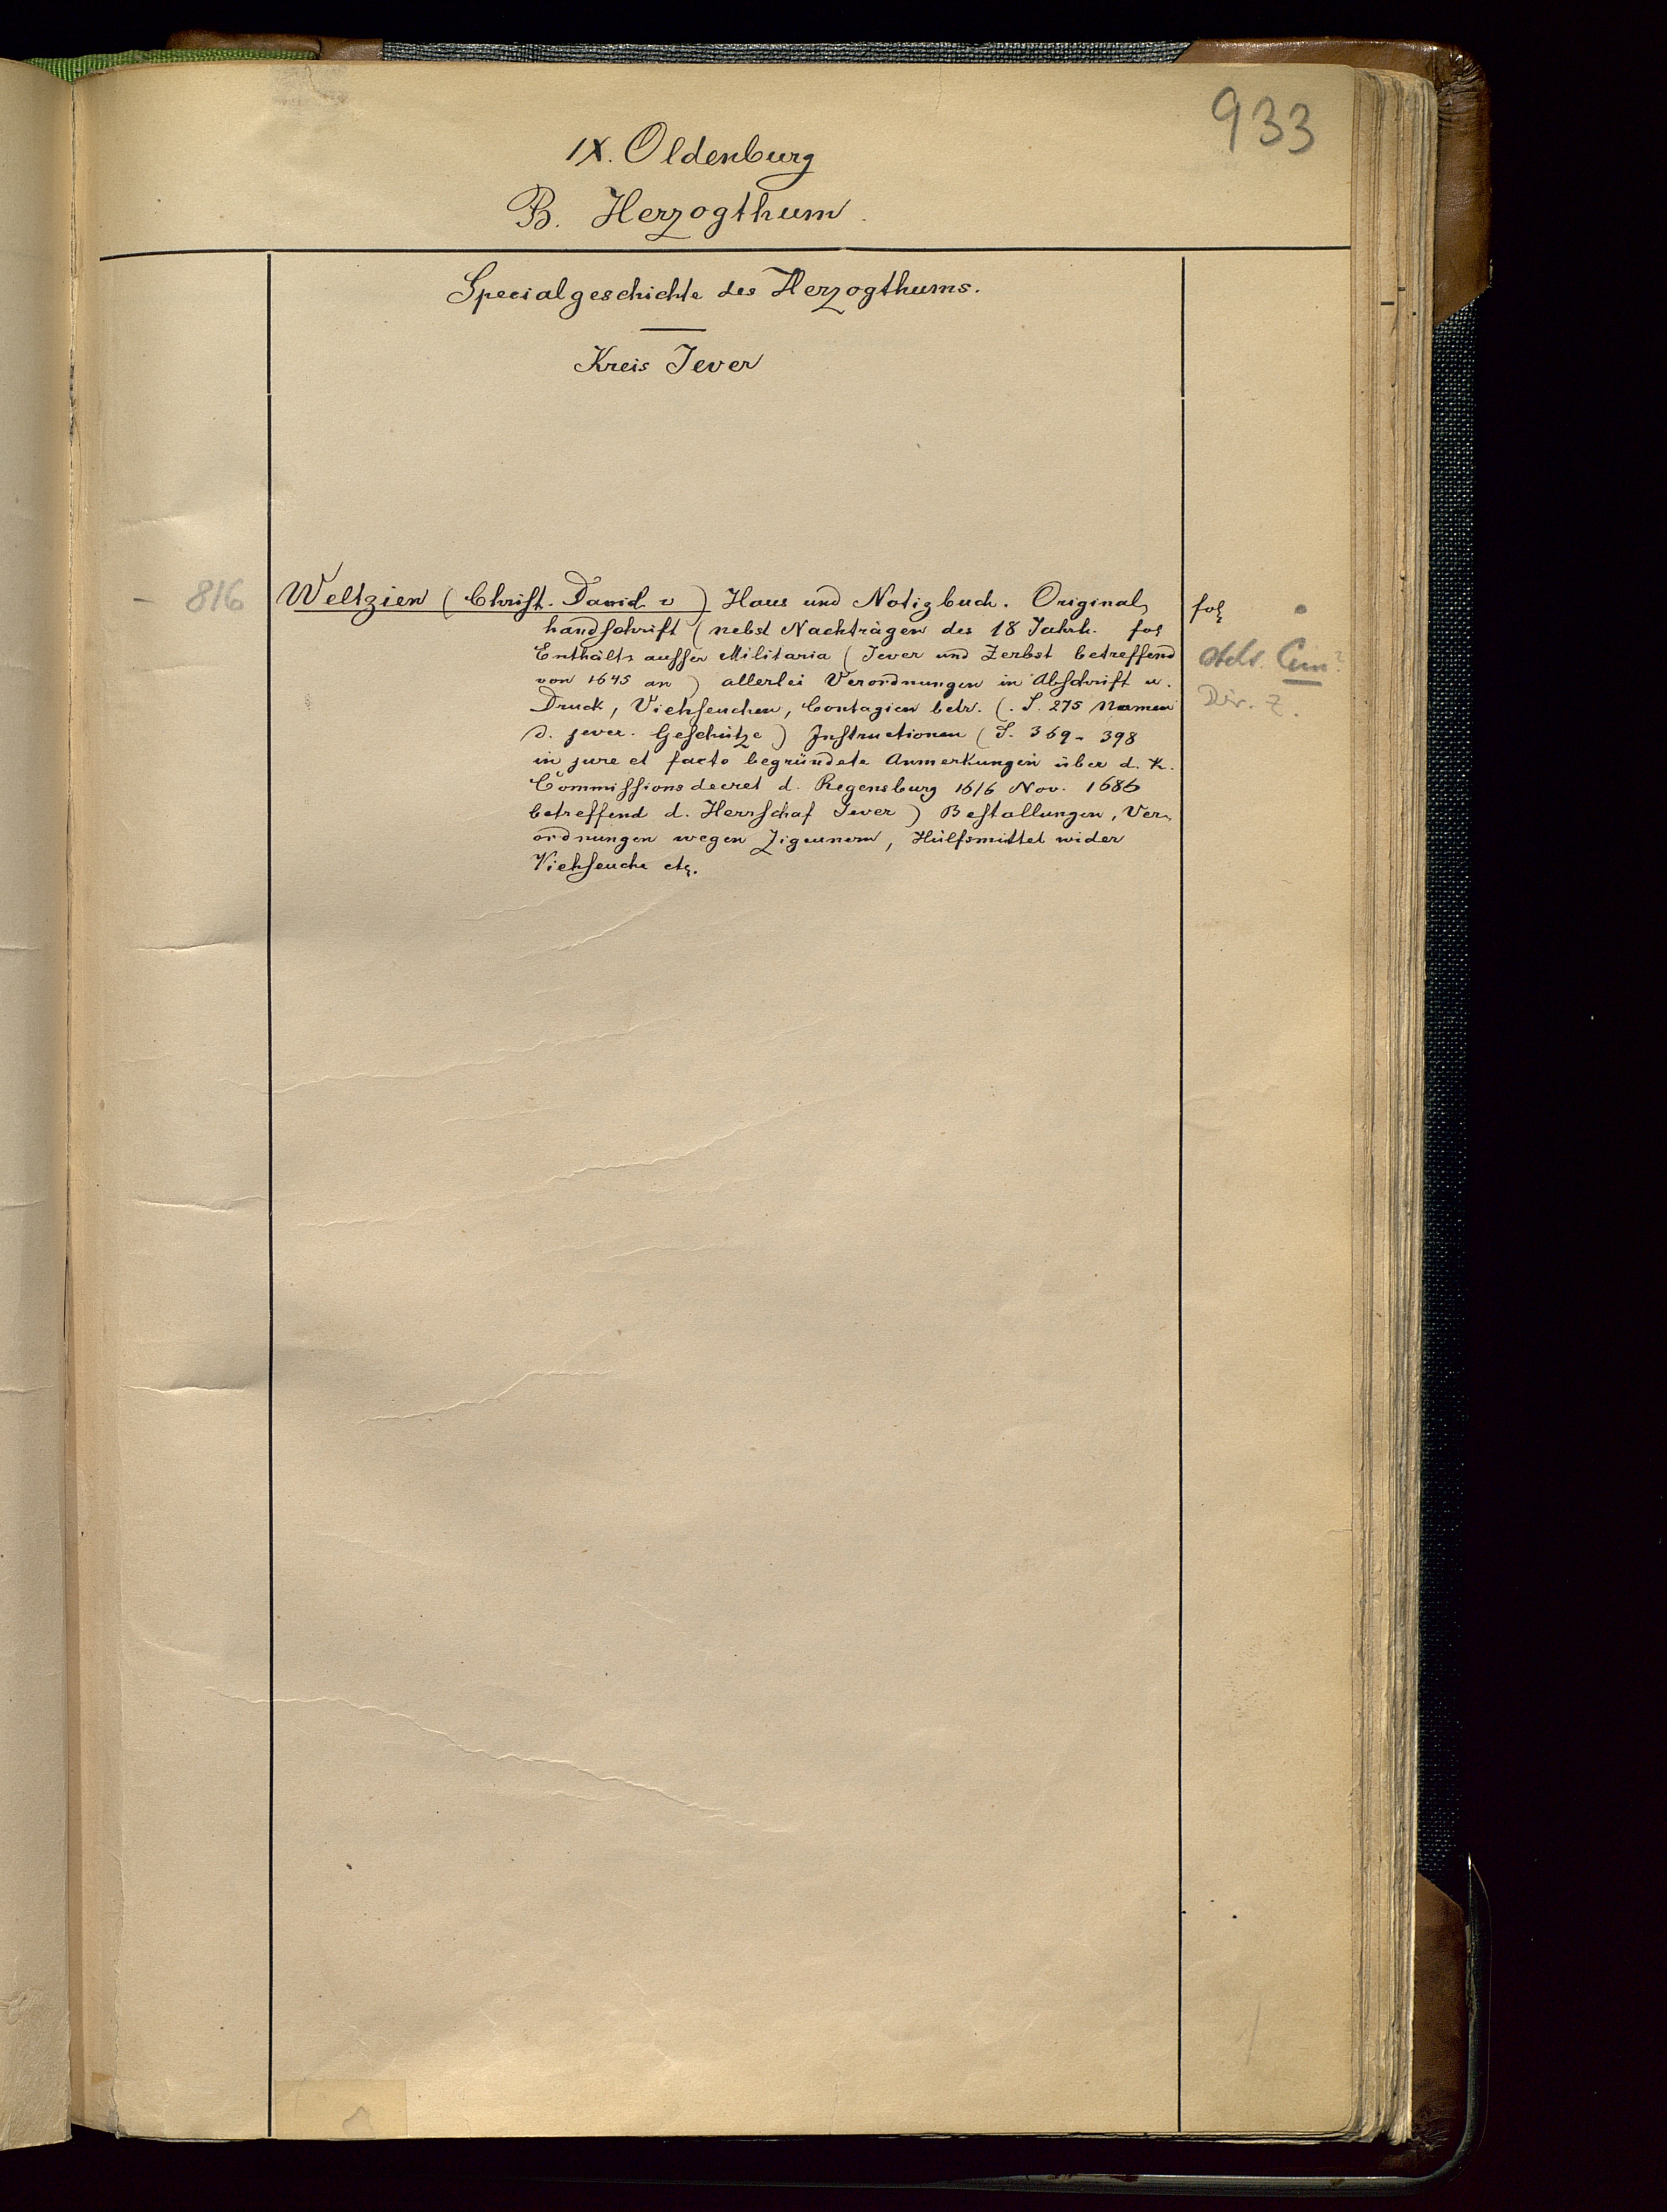 933
IX. Oldenburg
B. Herzogthum.
Specialgeschichte des Herzogthums.
Kreis Jever
– 816
Weltzien (Christ. David v) Haus und Notizbuch. Original,
handschrift (nebst Nachträgen des 18 Jahrh. fol
Enthält ausser Militaria (Jever und Zerbst betreffend
von 1645 an) allerlei Verordnungen in Abschrift u.
Druck, Viehseuchen, Contagien betr. (. S. 275 Namen
d. jever. Geschütze) Instructionen (S. 369 - 398
in jure et facto begründete Anmerkungen über d. K.
Commissionsdecret d. Regensburg 16/6 Nov. 1686
betreffend d. Herrschaf Jever) Bestallungen, Ver,
ordnungen wegen Zigeunern, Hülfsmittel wider
Viehseuche etc.
fol
Cim?
Dir. Z.